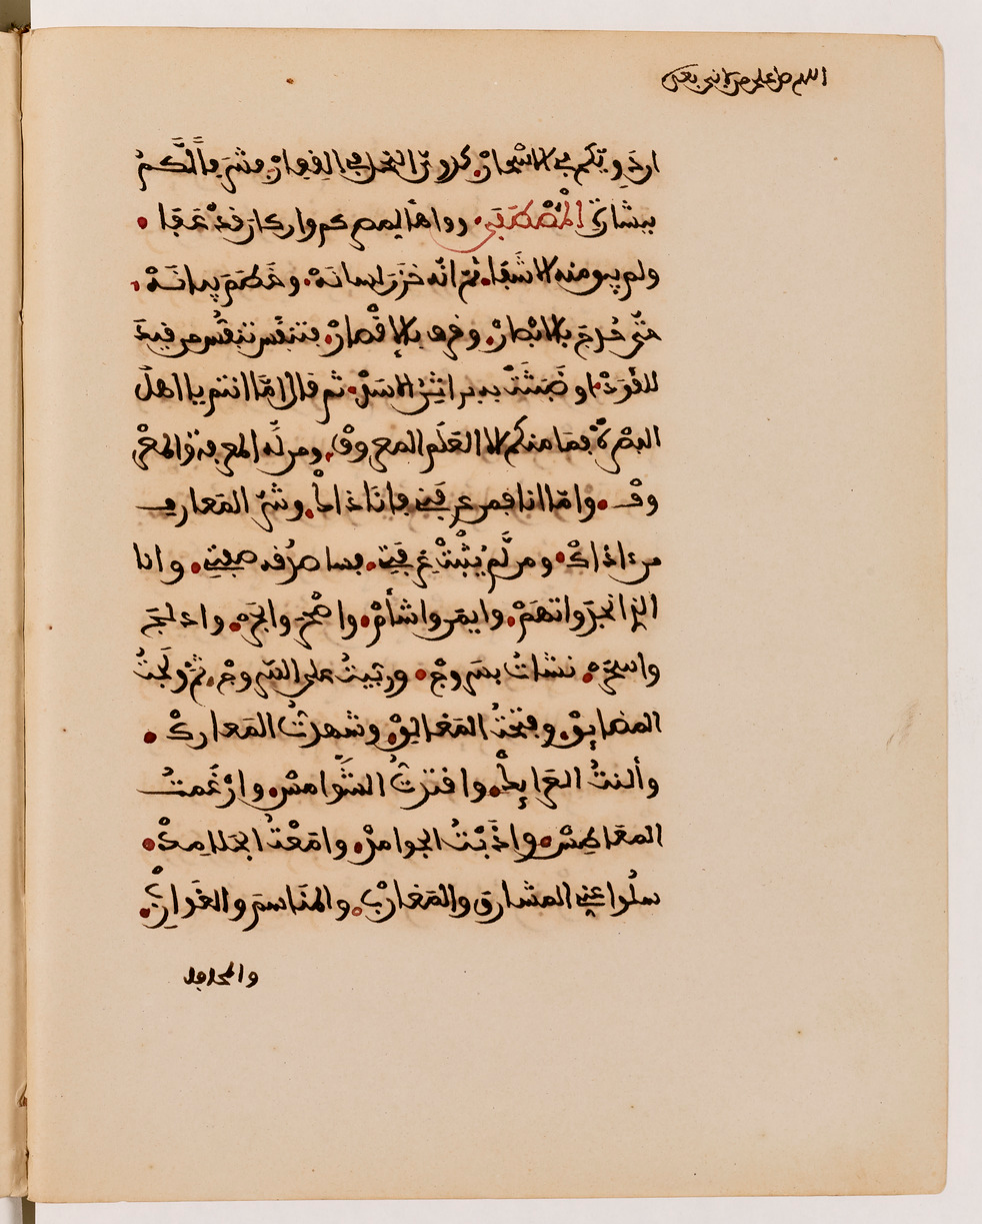 اللهم صل على من لا نبي بعده
ان دويكم في الاسحار كدوي النحل في القفار فشرفا لكم
ببشارة المصطفى وواها لمصركم وان كان قد عفا
ولم يبق منه الا شفا ثم انه خزن لسانه وخطم بيانه
حتى حدج بالابصار وقرف بالاقصار فتنفس تنفس من قيد
للقود او ضبثت به براثن الاسد ثم قال اما انتم يا اهل
البصرة فما منكم الا العلم المعروف ومن له المعرفة والمعر
وف واما انا فمن عرفني فانا ذاك وشر المعارف
من اذاك ومن لم يثبت عرفتي فساصدقه صفتي وانا
الذي انجد واتهم وايمن واشأم واصحر وابحر وادلج
واسحر نشات بسروج وربيت على السروج ثم ولجت
المضايق وفتحت المغالق وشهدت المعارك
وألنت العرايك واقتدت الشوامس وارغمت
المعاطس واذبت الجوامد وامعت الجلامد
سلوا عني المشارق والمغارب والمناسم والغوارب
والمحافل